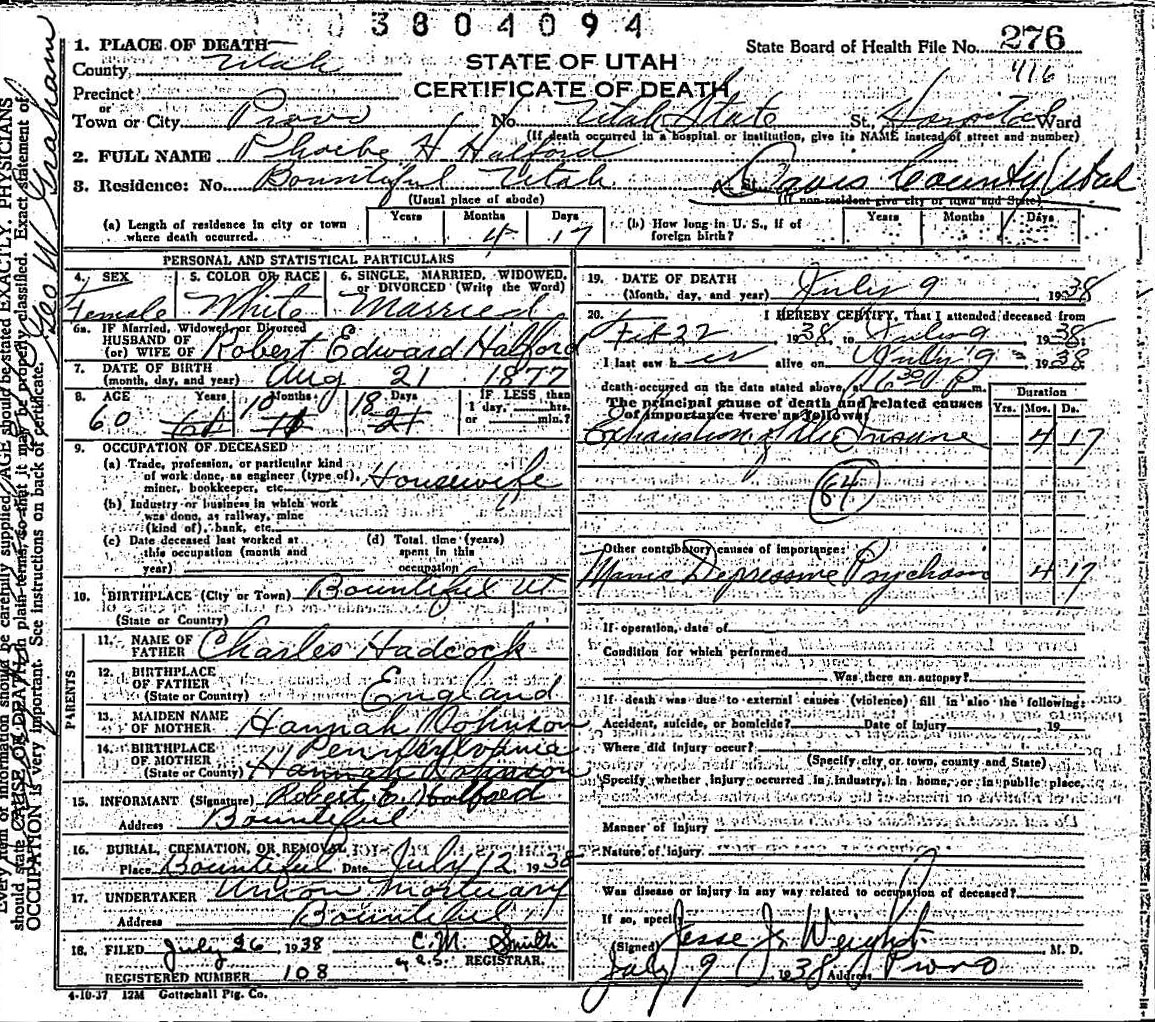 3804094
1. PLACE OF DEATH
State Board of Health File No. 276
County Utah
STATE OF UTAH
416
Precinct
CERTIFICATE OF DEATH
or
Town or City Provo No. Utah State St. Hospital Ward
(If death occurred in a hospital or institution, give its NAME instead of street and number)
2. FULL NAME Phoebe H Halford
3. Residence: No. Bountiful Utah St. Davis County Utah
(Usual place of abode) (If non-resident give city or town and State)
(a) Length of residence in city or town where death occurred. Years Months 4 Days 17
(b) How long in U. S., if of foreign birth? Years Months Days
PERSONAL AND STATISTICAL PARTICULARS
4. SEX Female
5. COLOR OR RACE White
6. SINGLE, MARRIED, WIDOWED, or DIVORCED (Write the Word) Married
6a. IF Married, Widowed, or Divorced
HUSBAND OF
(or) WIFE OF Robert Edward Halford
7. DATE OF BIRTH
(month, day, and year) Aug 21 1877
8. AGE Years Months Days IF LESS than
60 10 18 1 day, hrs.
or min.?
9. OCCUPATION OF DECEASED
(a) Trade, profession, or particular kind
of work done, as engineer (type of), Housewife
miner, bookkeeper, etc.
(b) Industry or business in which work
was done, as railway, mine
(kind of), bank, etc.
(c) Date deceased last worked at
this occupation (month and
year)
(d) Total time (years)
spent in this
occupation
10. BIRTHPLACE (City or Town) Bountiful Ut
(State or Country)
PARENTS
11. NAME OF
FATHER Charles Hadcock
12. BIRTHPLACE
OF FATHER England
(State or Country)
13. MAIDEN NAME
OF MOTHER Hannah Johnson
14. BIRTHPLACE Pennsylvania
OF MOTHER
(State or County) Hannah Johnson
15. INFORMANT (Signature) Robert E. Halford
Address Bountiful
16. BURIAL, CREMATION, OR REMOVAL
Place Bountiful Date July 12, 1938
17. UNDERTAKER Union Mortuary
Address Bountiful
18. FILED July 26 1938 C.M. Smith
REGISTRAR.
REGISTERED NUMBER 108
4-10-37 12M Gottschall Ptg. Co.
19. DATE OF DEATH
(Month, day, and year) July 9 1938
20. I HEREBY CERTIFY, That I attended deceased from
Feb 22 1938, to July 9, 1938.
I last saw her alive on July 9, 1938
death occurred on the date stated above, at 6 30 P m.
The principal cause of death and related causes
of importance were as follows:
Duration
Yrs. Mos. Ds.
Exhaustion of the Insane 4 17
84
Other contributory causes of importance:
Manic Depressive Psychosis 4 17
If operation, date of
Condition for which performed
Was there an autopsy?
If death was due to external causes (violence) fill in also the following:
Accident, suicide, or homicide? Date of injury 19
Where did injury occur?
(Specify city or town, county and State)
Specify whether injury occurred in industry, in home, or in public place.
Manner of injury
Nature of injury
Was disease or injury in any way related to occupation of deceased?
If so, specify
(Signed) Jesse J. Weight M. D.
July 9 1938 Address Provo
Every item of information should be carefully supplied. AGE should be stated EXACTLY. PHYSICIANS
should state CAUSE OF DEATH in plain terms, so that it may be properly classified. Exact statement of
OCCUPATION is very important. See instructions on back of certificate.
Geo W Graham